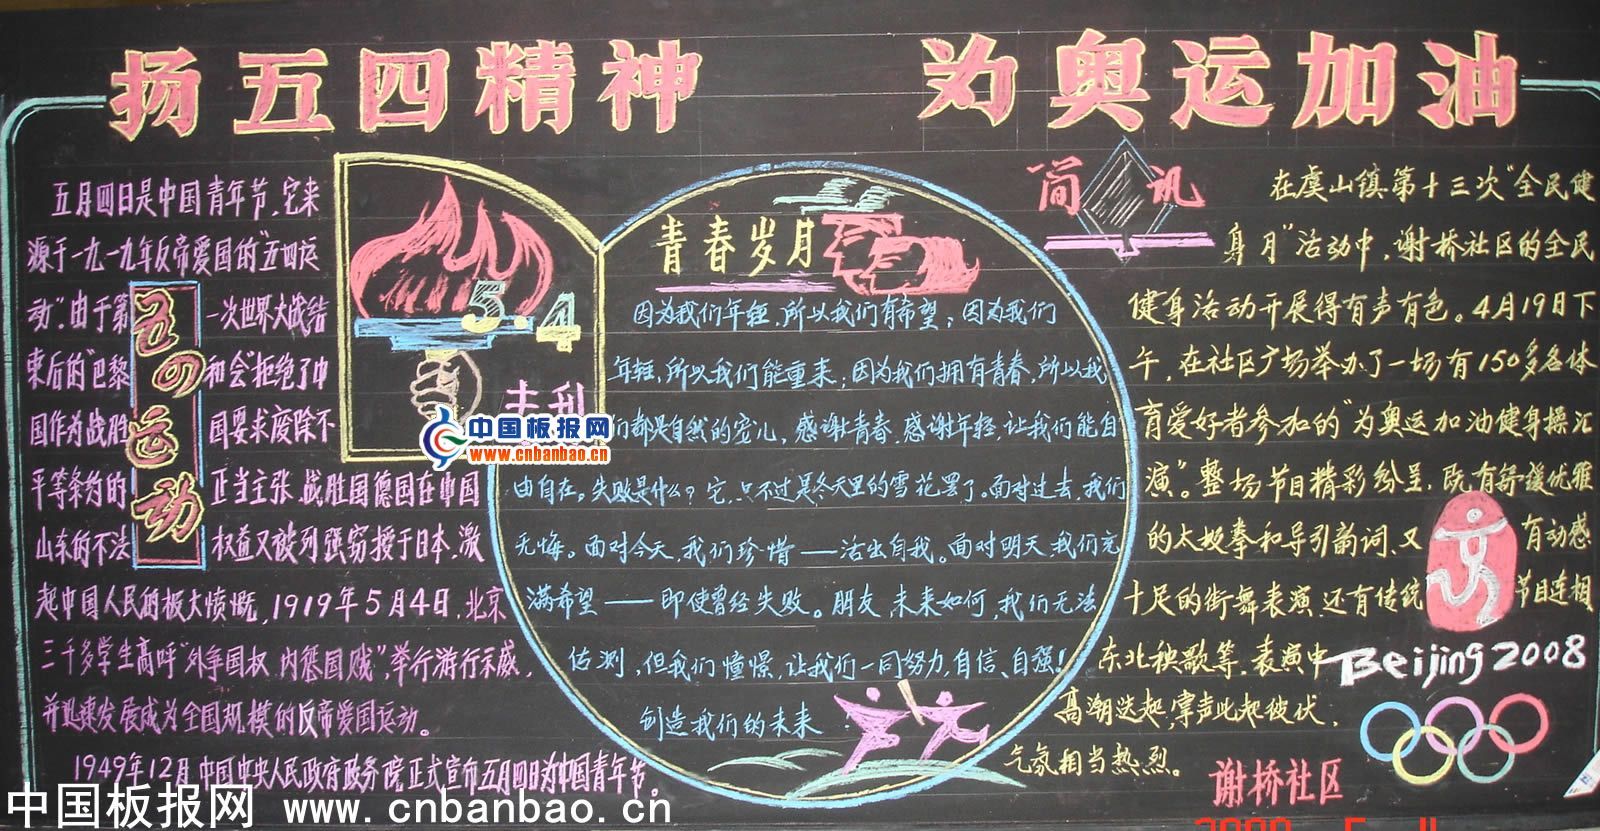 扬五四精神 为奥运加油
五月四日是中国青年节,它来
源于一九一九年反帝爱国的"五四运
动".由于第一次世界大战结
束后的"巴黎和会"拒绝了中
国作为战胜国要求废除不
平等条约的正当主张,战胜国德国在中国
山东的不法权益又被列强窃授于日本,激
起中国人民的极大愤慨,1919年5月4日,北京
三千多学生高呼"外争国权,内惩国贼",举行游行示威,
并迅速发展成为全国规模的反帝爱国运动。
1949年12月,中国中央人民政府政务院正式宣布五月四日为中国青年节。
五四运动
5.4
专刊
中国板报网
www.cnbanbao.cn
青春岁月
因为我们年轻,所以我们有希望;因为我们
年轻,所以我们能重来;因为我们拥有青春,所以我
们都是自然的宠儿,感谢青春,感谢年轻,让我们能自
由自在。失败是什么?它,只不过是冬天里的雪花罢了。面对过去,我们
无悔。面对今天,我们珍惜——活出自我。面对明天,我们充
满希望——即使曾经失败。朋友,未来如何,我们无法
估测,但我们憧憬,让我们一同努力,自信、自强!
创造我们的未来!
简讯
在虞山镇第十三次"全民健
身月"活动中,谢桥社区的全民
健身活动开展得有声有色。4月19日下
午,在社区广场举办了一场有150多名体
育爱好者参加的"为奥运加油健身操汇
演"。整场节目精彩纷呈,既有舒缓优雅
的太极拳和导引韵词,又有动感
十足的街舞表演,还有传统节目连相
东北秧歌等,表演中
高潮迭起,掌声此起彼伏,
气氛相当热烈。
Beijing 2008
谢桥社区
中国板报网 www.cnbanbao.cn